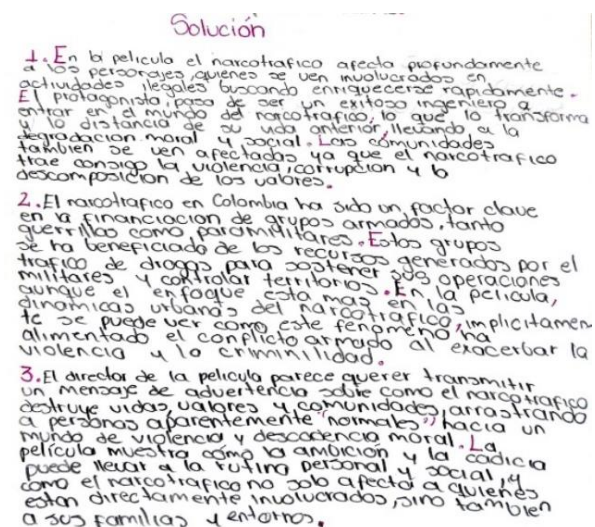 Solución
1. En la pelicula el narcotrafico afecta profundamente
a los personajes, quienes se ven involucrados en
actividades ilegales buscando enriquecerse rapidamente.
El protagonista, pasa de ser un exitoso ingeniero a
entrar en el mundo del narcotrafico, lo que lo transforma
y lo distancia de su vida anterior, llevando a la
degradacion moral y social. Las comunidades
tambien se ven afectadas ya que el narcotrafico
trae consigo la violencia, corrupcion y la
descomposicion de los valores.
2. El narcotrafico en Colombia ha sido un factor clave
en la financiacion de grupos armados, tanto
guerrillas como paramilitares. Estos grupos
se ha beneficiado de los recursos generados por el
trafico de drogas para sostener sus operaciones
militares y controlar territorios. En la pelicula,
aunque el enfoque esta mas en las
dinamicas urbanas del narcotrafico, implicitamen
te se puede ver como este fenomeno ha
alimentado el conflicto armado al exacerbar la
violencia y la criminilidad.
3. El director de la pelicula parece querer transmitir
un mensaje de advertencia sobre como el narcotrafico
destruye vidas valores y comunidades, arrastrando
a personas aparentemente "normales" hacia un
mundo de violencia y descadencia moral. La
película muestra cómo la ambición y la codicia
puede llevar a la rutina personal y social, y
como el narcotrafico no solo afecta a quienes
estan directamente involucrados, sino tambien
a sus familias y entornos.